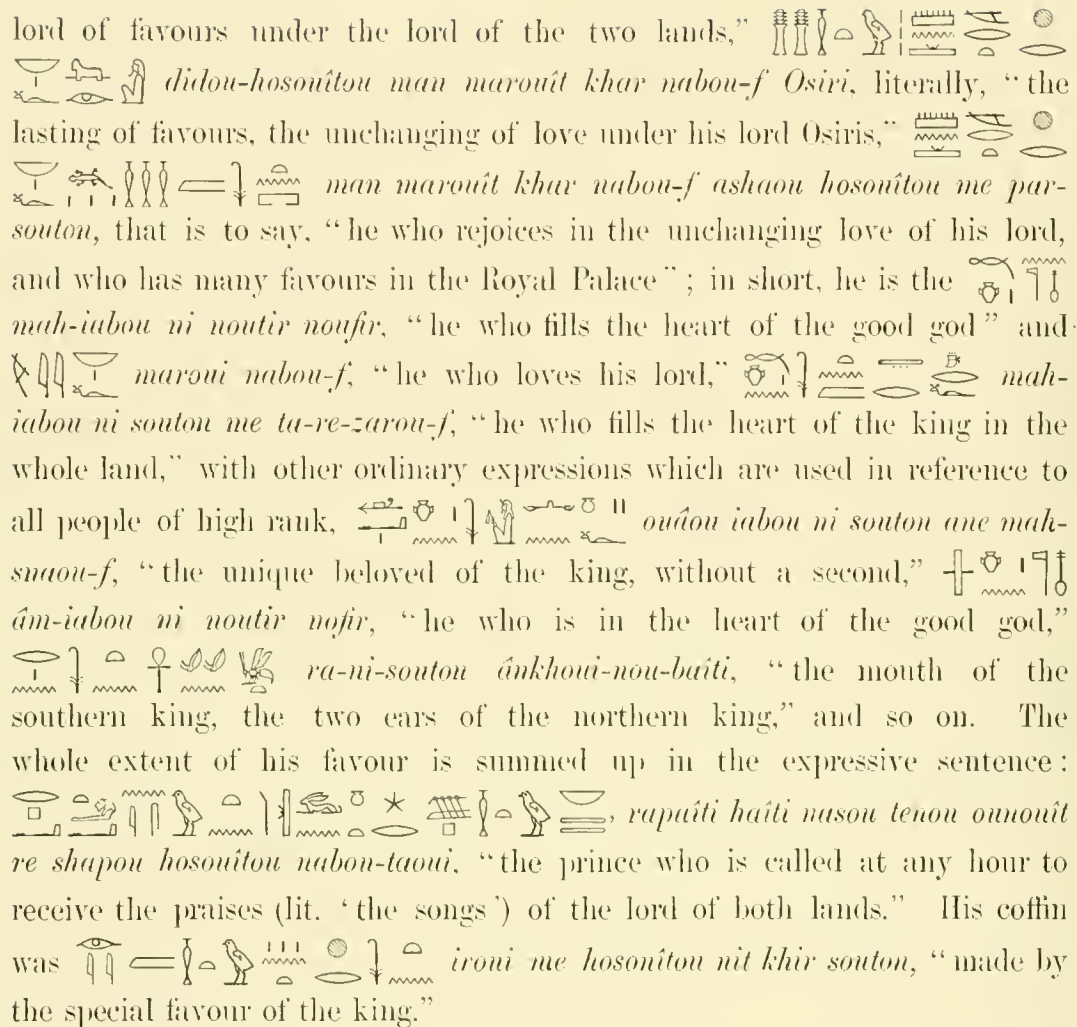 lord of favours under the lord of the two lands,”
didou-hosouîtou man marouît khar nabou-f Osiri, literally, “the
lasting of favours, the unchanging of love under his lord Osiris,”
man marouît khar nabou-f ashaou hosouîtou me par-
souton, that is to say, “he who rejoices in the unchanging love of his lord,
and who has many favours in the Royal Palace”; in short, he is the
mah-iabou ni noutir noufir, “he who fills the heart of the good god” and
maroui nabou-f, “he who loves his lord,” mah-
iabou ni souton me ta-re-zarou-f, “he who fills the heart of the king in the
whole land,” with other ordinary expressions which are used in reference to
all people of high rank, ouâou iabou ni souton ane mah-
snaou-f, “the unique beloved of the king, without a second,”
âm-iabou ni noutir nofir, “he who is in the heart of the good god,”
ra-ni-souton ânkhoui-nou-baîti, “the mouth of the
southern king, the two ears of the northern king,” and so on. The
whole extent of his favour is summed up in the expressive sentence:
, rapaîti haîti nasou tenou ounouît
re shapou hosouîtou nabou-taoui, “the prince who is called at any hour to
receive the praises (lit. ‘the songs’) of the lord of both lands.” His coffin
was iroui me hosouîtou nit khir souton, “made by
the special favour of the king.”